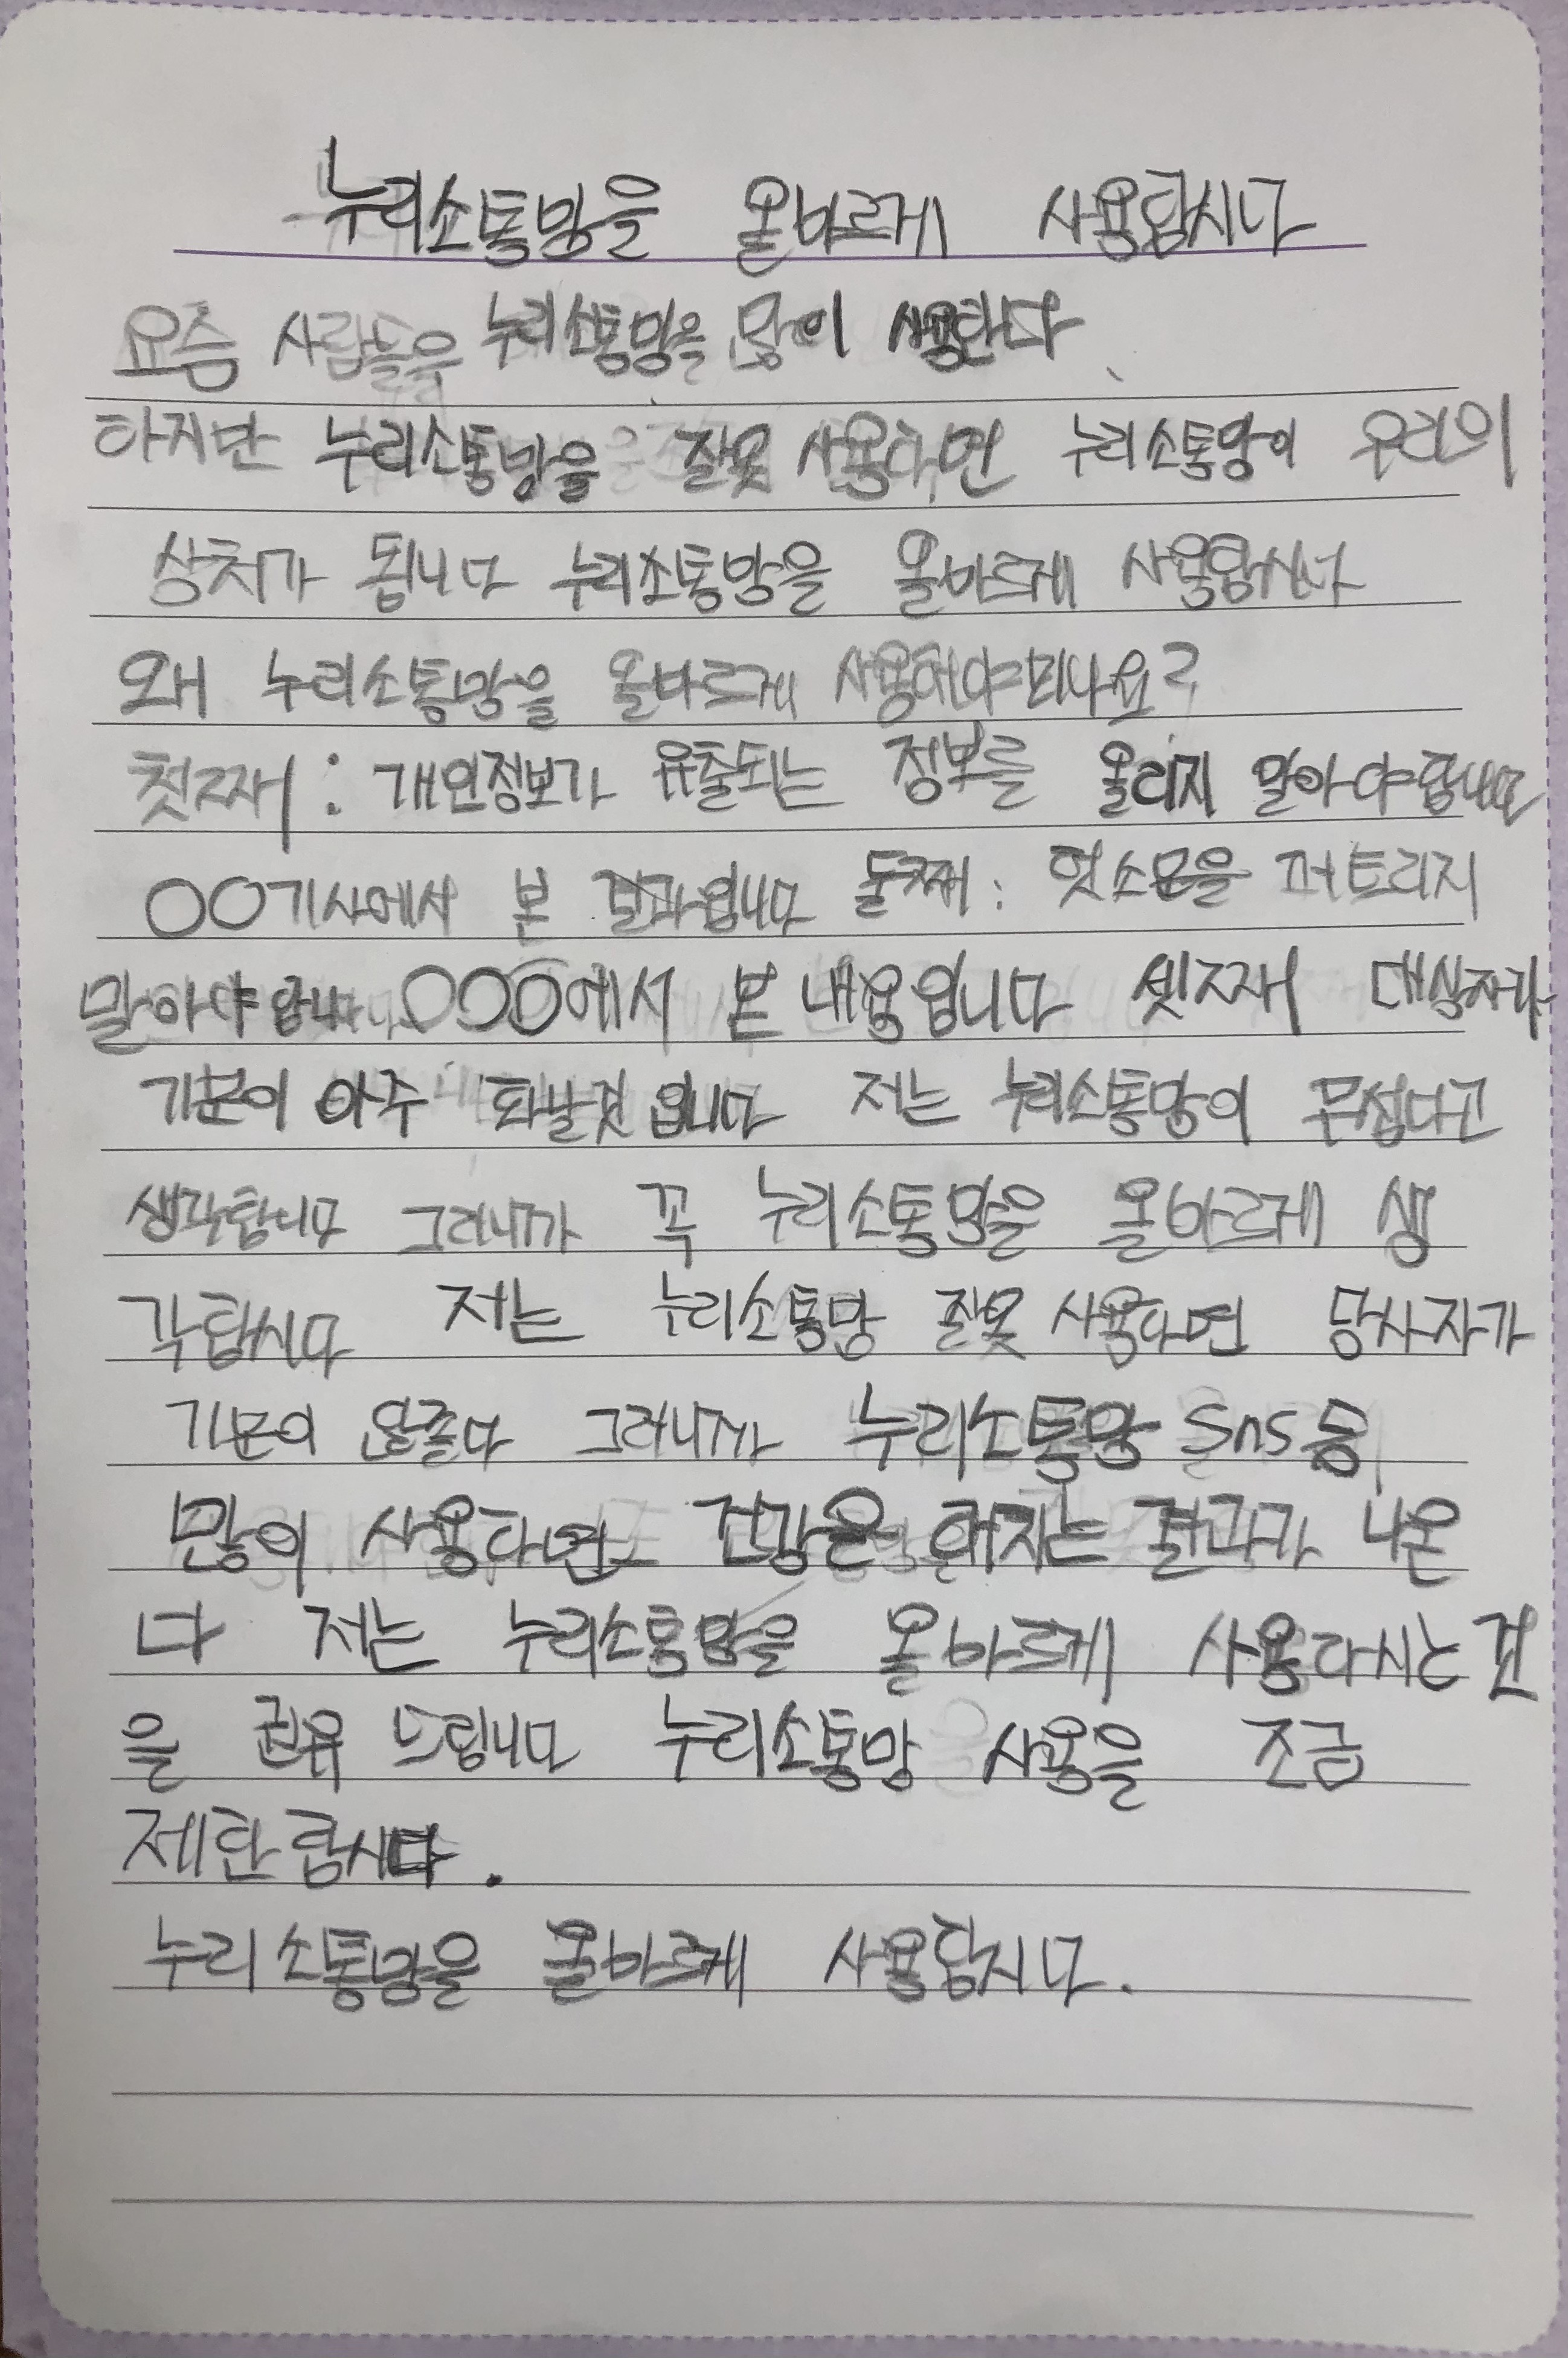 누리소통망을 올바르게 사용합시다
요즘 사람들은 누리소통망을 많이 사용한다
하지만 누리소통망을 잘못 사용하면 누리소통망이 우리의
상처가 됩니다 누리소통망을 올바르게 사용합시다
왜 누리소통망을 올바르게 사용해야되나요?
첫째: 개인정보가 유출되는 정보를 올리지 말아야합니다
○○기사에서 본 결과입니다 둘째: 헛소문을 퍼트리지
말아야합니다 ○○○에서 본 내용입니다 셋째 대상자가
기분이 아주 화날것 입니다 저는 누리소통망이 무섭다고
생각합니다 그러니까 꼭 누리소통망을 올바르게 생
각합시다 저는 누리소통망 잘못 사용하면 당사자가
기분이 않좋다 그러니까 누리소통망 SnS등
많이 사용하면 건강은 해치는 결과가 나온
다 저는 누리소통망을 올바르게 사용하시는 것
을 권유 드립니다 누리소통망 사용을 조금
제한합시다.
누리소통망을 올바르게 사용합시다.